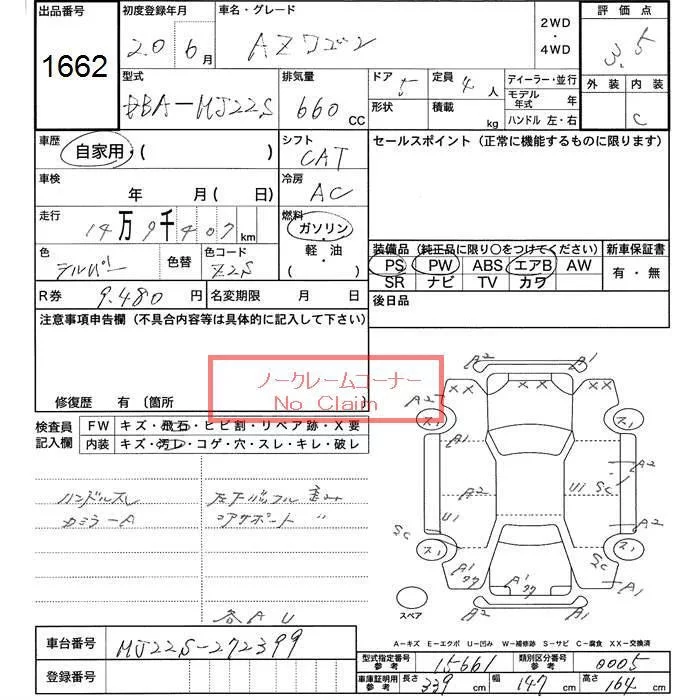 出品番号 初度登録年月 車名・グレード 2WD ・ 4WD 評価点
1662 20 6月 AZワゴン 3.5
型式 排気量 ドア 定員 ディーラー・並行 外装 内装
DBA-MJ22S 660 CC 5 4人 モデル年式 年 C
形状 積載 kg ハンドル 左・右
車歴 シフト セールスポイント (正常に機能するものに限ります)
自家用・( ) CAT
車検 冷房
年 月 ( 日) AC
走行 燃料
14万9千407km ガソリン
色 色替 色コード 軽・油 装備品 (純正品に限り○をつけてください) 新車保証書
シルバー Z2S ( ) PS PW ABS エアB AW 有・無
SR ナビ TV カワ
R券 9.480円 名変期限 月 日 後日品
注意事項申告欄 (不具合内容等は具体的に記入して下さい)
ノークレームコーナー
No Claim
修復歴 有 (箇所
検査員記入欄 FW キズ・飛石・ヒビ割・リペア跡・X要
内装 キズ・汚レ・コゲ・穴・スレ・キレ・破レ
ハンドルスレ
カミラーA
コアサポート 〃
各AU
A2 A1
XX XX XX
A2
ス1 ス1
A1 A2
A2 U1 Sc
U1 A2
Sc Sc
ス1 ス1
A1 A1 A1
スペア A2 A1
A-キズ E-エクボ U-凹み W-補修跡 S-サビ C-腐食 XX-交換済
車台番号 MJ22S-272399
登録番号
型式指定番号 参考 15661 類別区分番号 参考 0005
車庫証明用 参考 長さ 339cm 幅 147cm 高さ 164cm